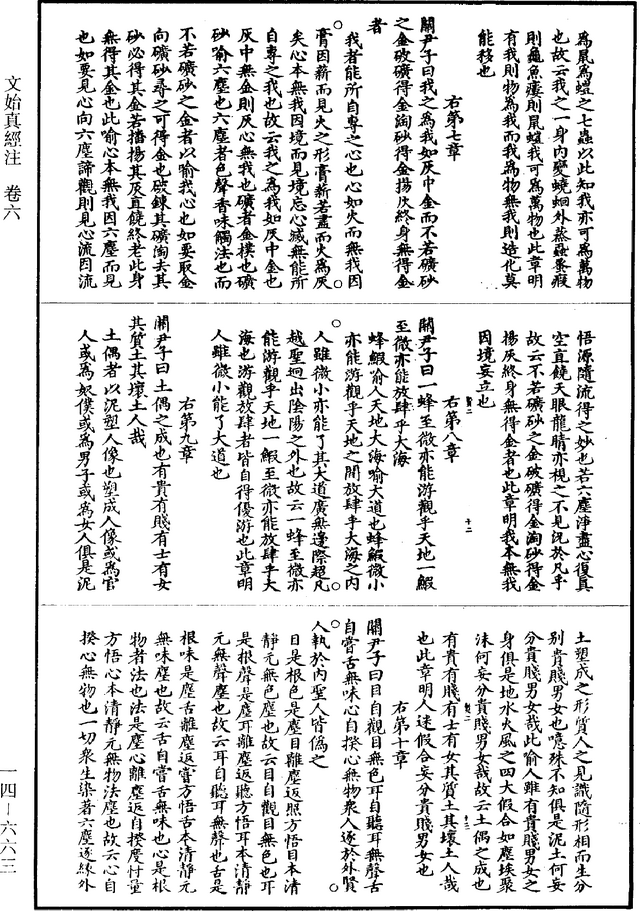 文始真經注　卷六
一四—六六三
爲鼠爲蠟之七蟲以此知我亦可爲萬物
也故云我之一身內變蟯蛔外蒸蝨蚤瘕
則龜魚瘻則鼠蟻我可爲萬物也此章明
有我則物爲我而我爲物無我則造化莫
能移也
右第七章
關尹子曰我之爲我如灰中金而不若礦砂
之金破礦得金淘砂得金揚灰終身無得金
者
我者能所自專之心也心如火而無我因
膏因薪而見火之形膏薪若盡而火爲灰
矣心本無我因境而見境忘心滅無能所
自專之我也故云我之爲我如灰中金也
灰中無金則灰心無我也礦者金樸也礦
砂喻六塵也六塵者色聲香味觸法也而
不若礦砂之金者以喻我心也如要取金
向礦砂尋之可得金也破鍊其礦淘去其
砂必得其金若播揚其灰直饒終老此身
無得其金也此喻心本無我因六塵而見
也如要見心向六塵諦觀則見心流因流
悟源隨流得之妙也若六塵淨盡心復真
空直饒天眼龍睛亦視之不見況於凡乎
故云不若礦砂之金破礦得金淘砂得金
揚灰終身無得金者也此章明我本無我
因境妄立也
右第八章
關尹子曰一蜂至微亦能游觀乎天地一鰕
至微亦能放肆乎大海
蜂鰕喻人天地大海喻大道也蜂鰕微小
亦能游觀乎天地之間放肆乎大海之內
人雖微小亦能了其大道廣無邊際超凡
越聖迥出陰陽之外也故云一蜂至微亦
能游觀乎天地一鰕至微亦能放肆乎大
海也游觀放肆者皆自得優游也此章明
人雖微小能了大道也
右第九章
關尹子曰土偶之成也有貴有賤有士有女
其質土其壞土人哉
土偶者以泥塑人像也塑成人像或爲官
人或爲奴僕或爲男子或爲女人俱是泥
土塑成之形質人之見識隨形相而生分
別貴賤男女也噫殊不知俱是泥土何妄
分貴賤男女哉此喻人雖有貴賤男女之
身俱是地水火風之四大假合如塵埃聚
沫何妄分貴賤男女哉故云土偶之成也
有貴有賤有士有女其質土其壞土人哉
也此章明人迷假合妄分貴賤男女也
右第十章
關尹子曰目自觀目無色耳自聽耳無聲舌
自嘗舌無味心自揆心無物衆人逐於外賢
人執於內聖人皆僞之
目是根色是塵目離塵返照方悟目本清
靜元無色塵也故云目自觀目無色也耳
是根聲是塵耳離塵返聽方悟耳本清靜
元無聲塵也故云耳自聽耳無聲也舌是
根味是塵舌離塵返嘗方悟舌本清靜元
無味塵也故云舌自嘗舌無味也心是根
物者法也法是塵心離塵返自揆度忖量
方悟心本清靜元無物法塵也故云心自
揆心無物也一切衆生染著六塵逐緣外